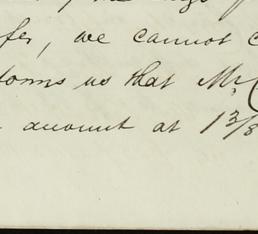 fer, we cannot
forms us that Mr.
account at 1 3/8